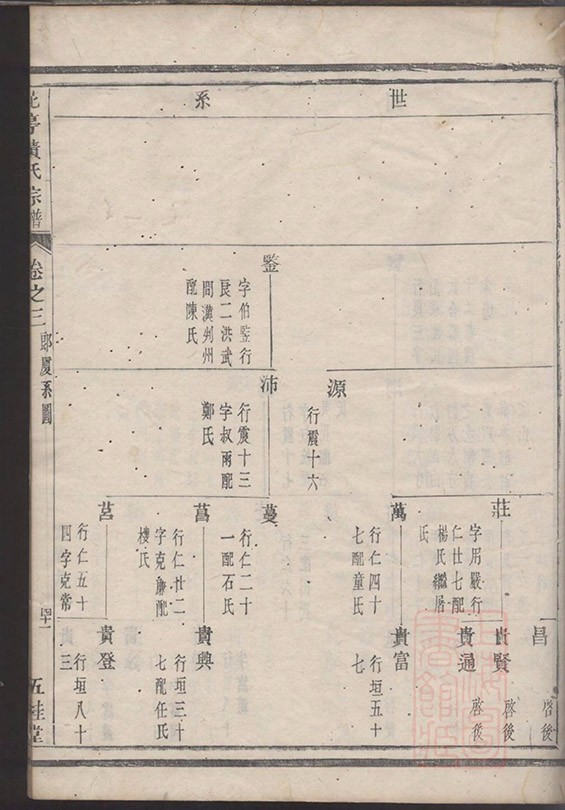 世系
鑒
字伯監行
良二洪武
間漢判州
配陳氏
源
行震十六
沛
行震十三
字叔雨配
鄭氏
莊
字用嚴行
仁廿七配
楊氏繼屠
氏
萬
行仁四十
七配童氏
蔓
行仁二十
一配石氏
菖
行仁廿二
字克廉配
樓氏
莒
行仁五十
四字克常
昌
啓後
貴賢
啓後
貴通
啓後
貴富
行垣五十
七
貴興
行垣三十
七配任氏
貴登
行垣八十
三
亭黃氏宗譜
卷之三
郎廈系圖
五桂堂